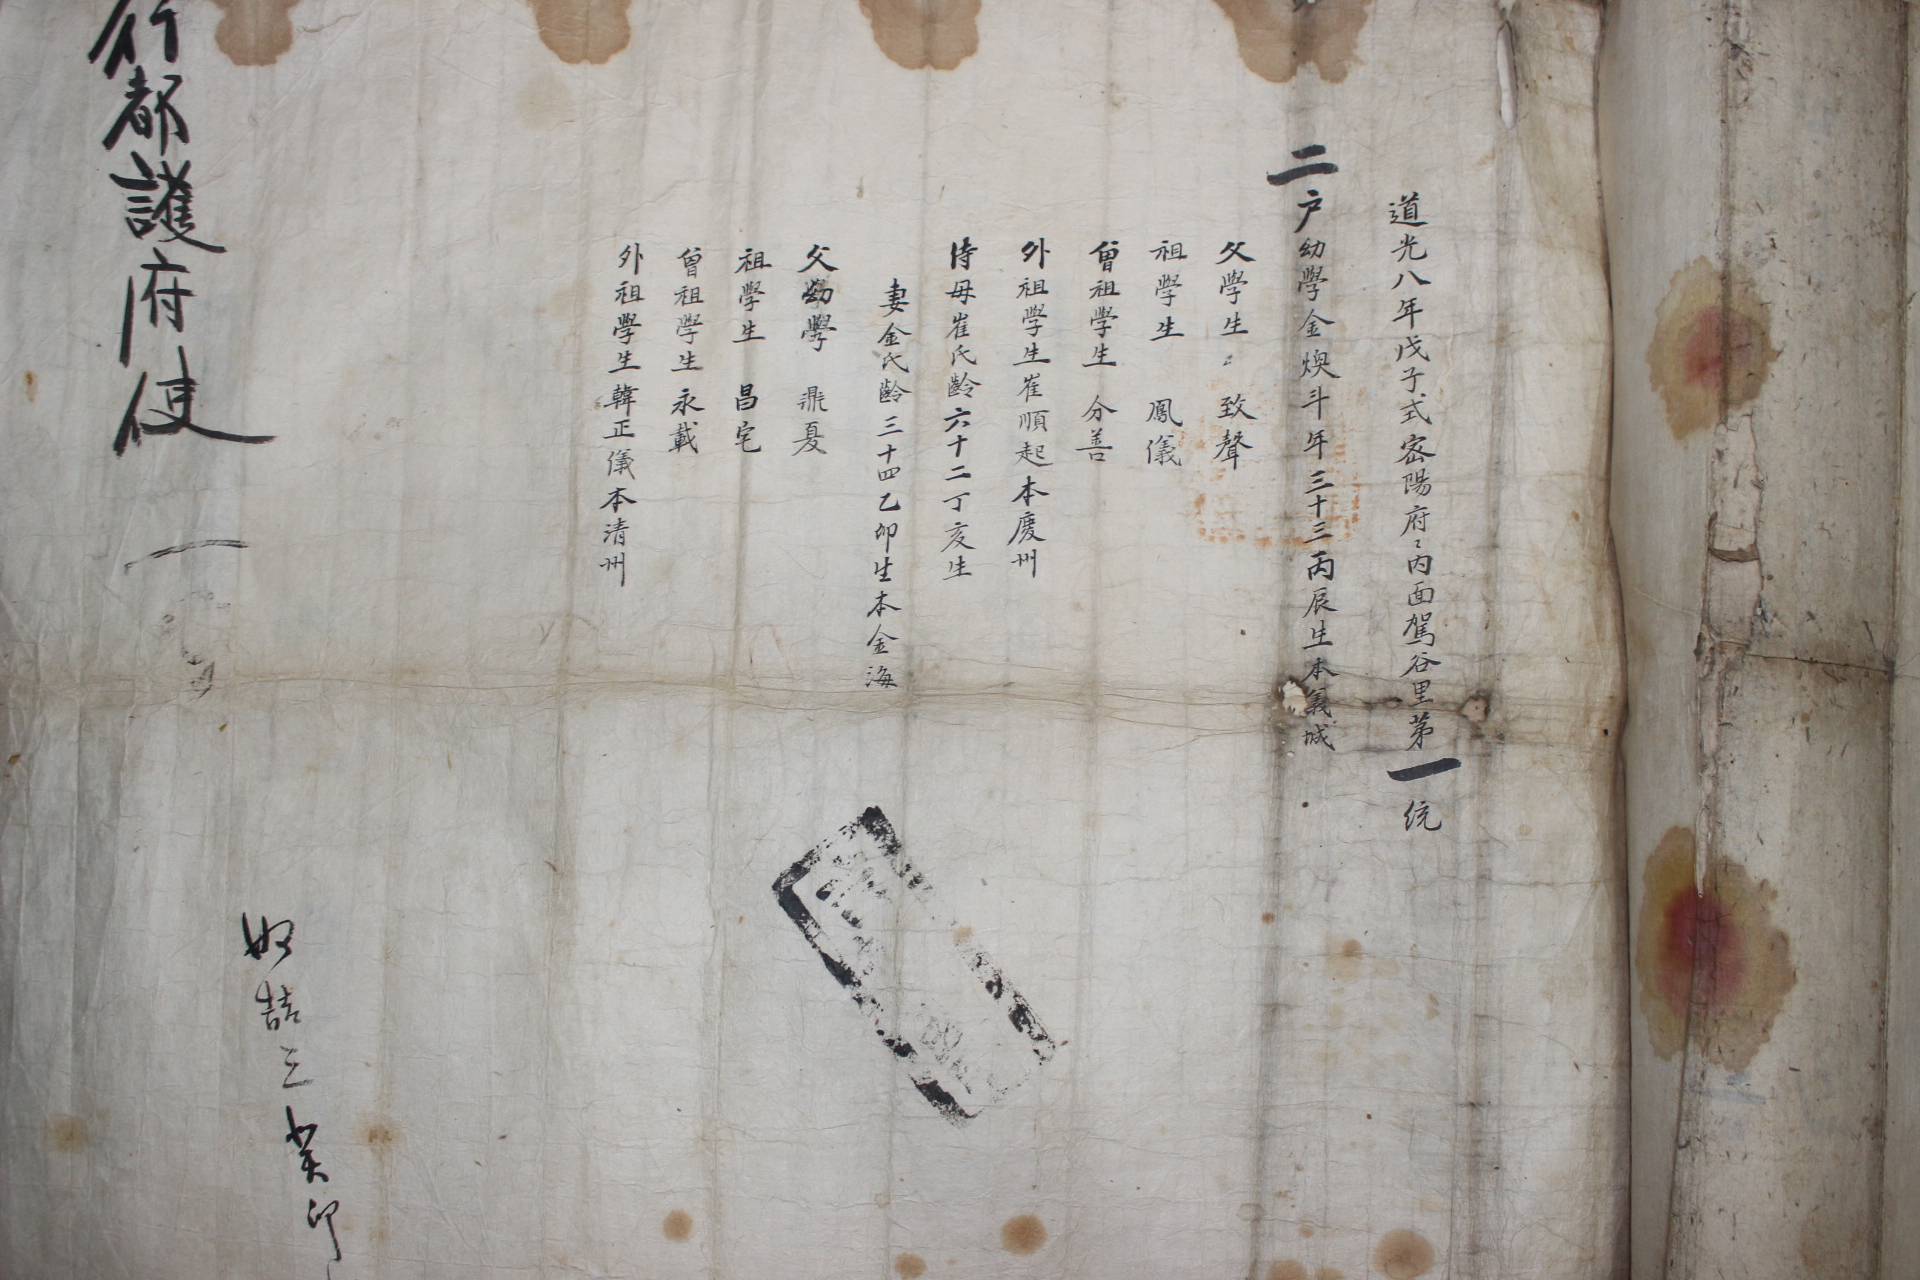 道光八年戊子式密陽府〻內面駕谷里第一統
二戶幼學金煥斗年三十三丙辰生本義城
父學生〻致聲
祖學生鳳儀
曾祖學生分善
外祖學生崔順起本慶州
侍母崔氏齡六十二丁亥生
妻金氏齡三十四乙卯生本金海
父幼學鼎夏
祖學生昌宅
曾祖學生永載
外祖學生韓正儀本清州
行都護府使